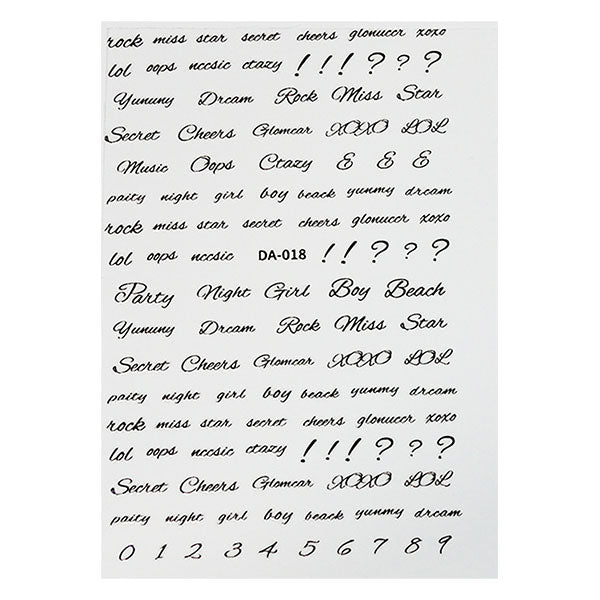 rock miss star secret cheers glonuccr xoxo
lol oops nccsic ctazy ! ! ! ? ? ?
Yununy Drcam Rock Miss Star
Secret Cheers Glomcar XOXO LOL
Music Oops Ctazy E E E
paity night girl boy beach yunmy drcam
rock miss star secret cheers glonuccr xoxo
lol oops nccsic DA-018 ! ! ? ? ?
Party Night Girl Boy Beach
Yununy Drcam Rock Miss Star
Secret Cheers Glomcar XOXO LOL
paity night girl boy beach yunmy drcam
rock miss star secret cheers glonuccr xoxo
lol oops nccsic ctazy ! ! ! ? ? ?
Secret Cheers Glomcar XOXO LOL
paity night girl boy beach yunmy drcam
0 1 2 3 4 5 6 7 8 9